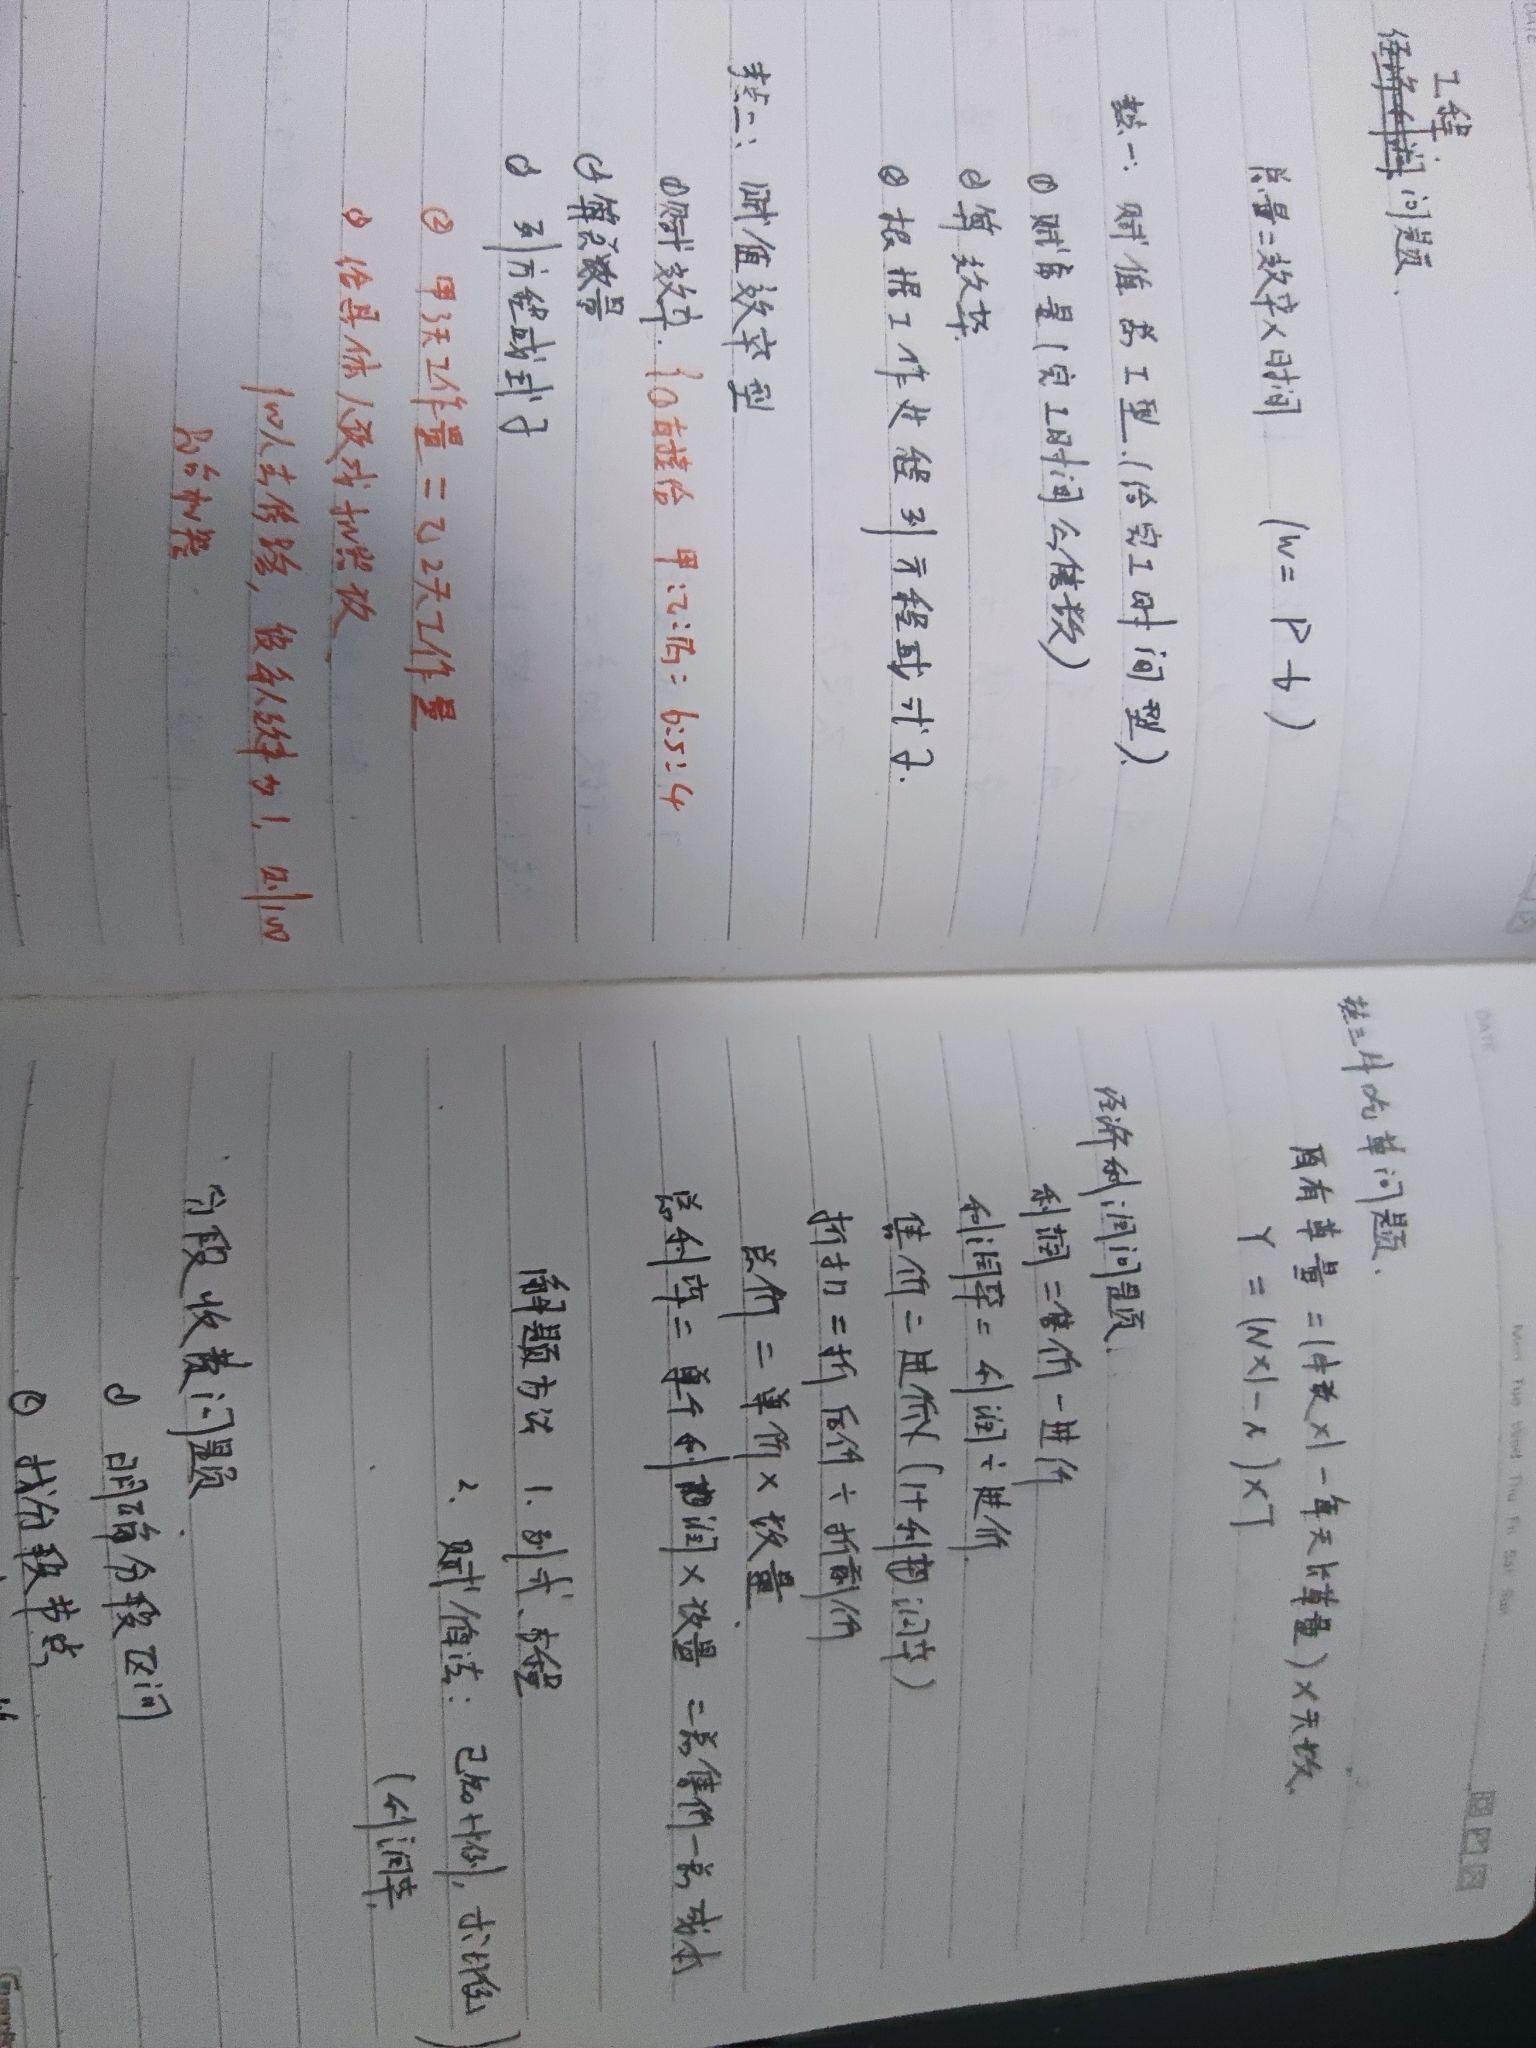 工程
问题.
总量=效率×时间 (W= P t)
考点一: 赋值总工型.(给完工时间型).
① 赋总量(完工时间公倍数)
② 算效率
③ 根据工作过程列方程或式子.
考点二: 赋值效率型
①赋效率. {①直接给 甲:乙:丙= 6:5:4
②算总量
③ 列方程或式子
② 甲3天工作量 = 乙2天工作量
③ 给具体人数或机器数.
100人去修路, 设每人效率为1, 则100
台机器
DATE
考点三 牛吃草问题.
原有草量 =(牛数×1 - 每天长草量)×天数.
Y =(N×1-x)×T
经济利润问题.
利润=售价-进价
利润率= 利润÷进价.
售价=进价×(1+利润率)
折扣=折后价÷折前价
总价=单价×数量.
总利率=单个利润×数量=总售价-总成本
解题方法 1. 列式、方程
2. 赋值法: 已知比例, 求比例
(利润率.)
分段收费问题.
① 明确分段区间
② 找分段节点
Mon Tue Wed Thu Fri Sat Sun